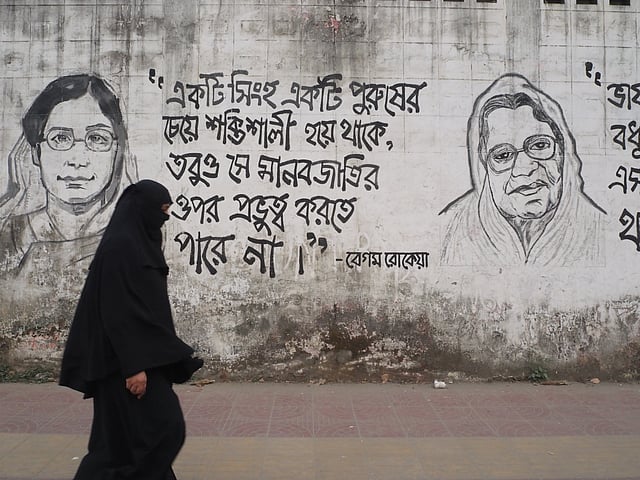 “ একটি সিংহ একটি পুরুষের
চেয়ে শক্তিশালী হয়ে থাকে,
তবুও সে মানবজাতির
ওপর প্রভুত্ব করতে
পারে না।”
- বেগম রোকেয়া
“